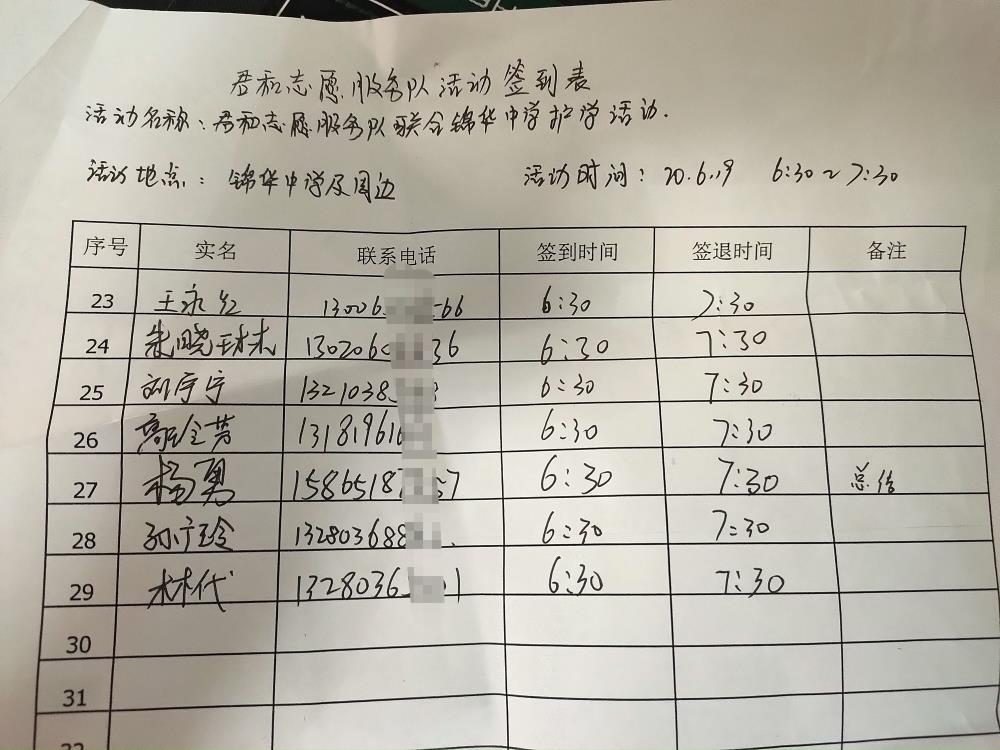 君和志愿服务队活动签到表
活动名称:君和志愿服务队联合锦华中学护学活动.
活动地点: 锦华中学及周边 活动时间: 20.6.19 6:30~7:30
序号 实名 联系电话 签到时间 签退时间 备注
23 王永红 13006 66 6:30 7:30
24 朱晓琳 130206 36 6:30 7:30
25 刘宇宁 1321038 6:30 7:30
26 高玲芳 13181961 6:30 7:30
27 杨勇 1586518 57 6:30 7:30 总结
28 孙广玲 132803688 6:30 7:30
29 林代 1328036 01 6:30 7:30
30
31